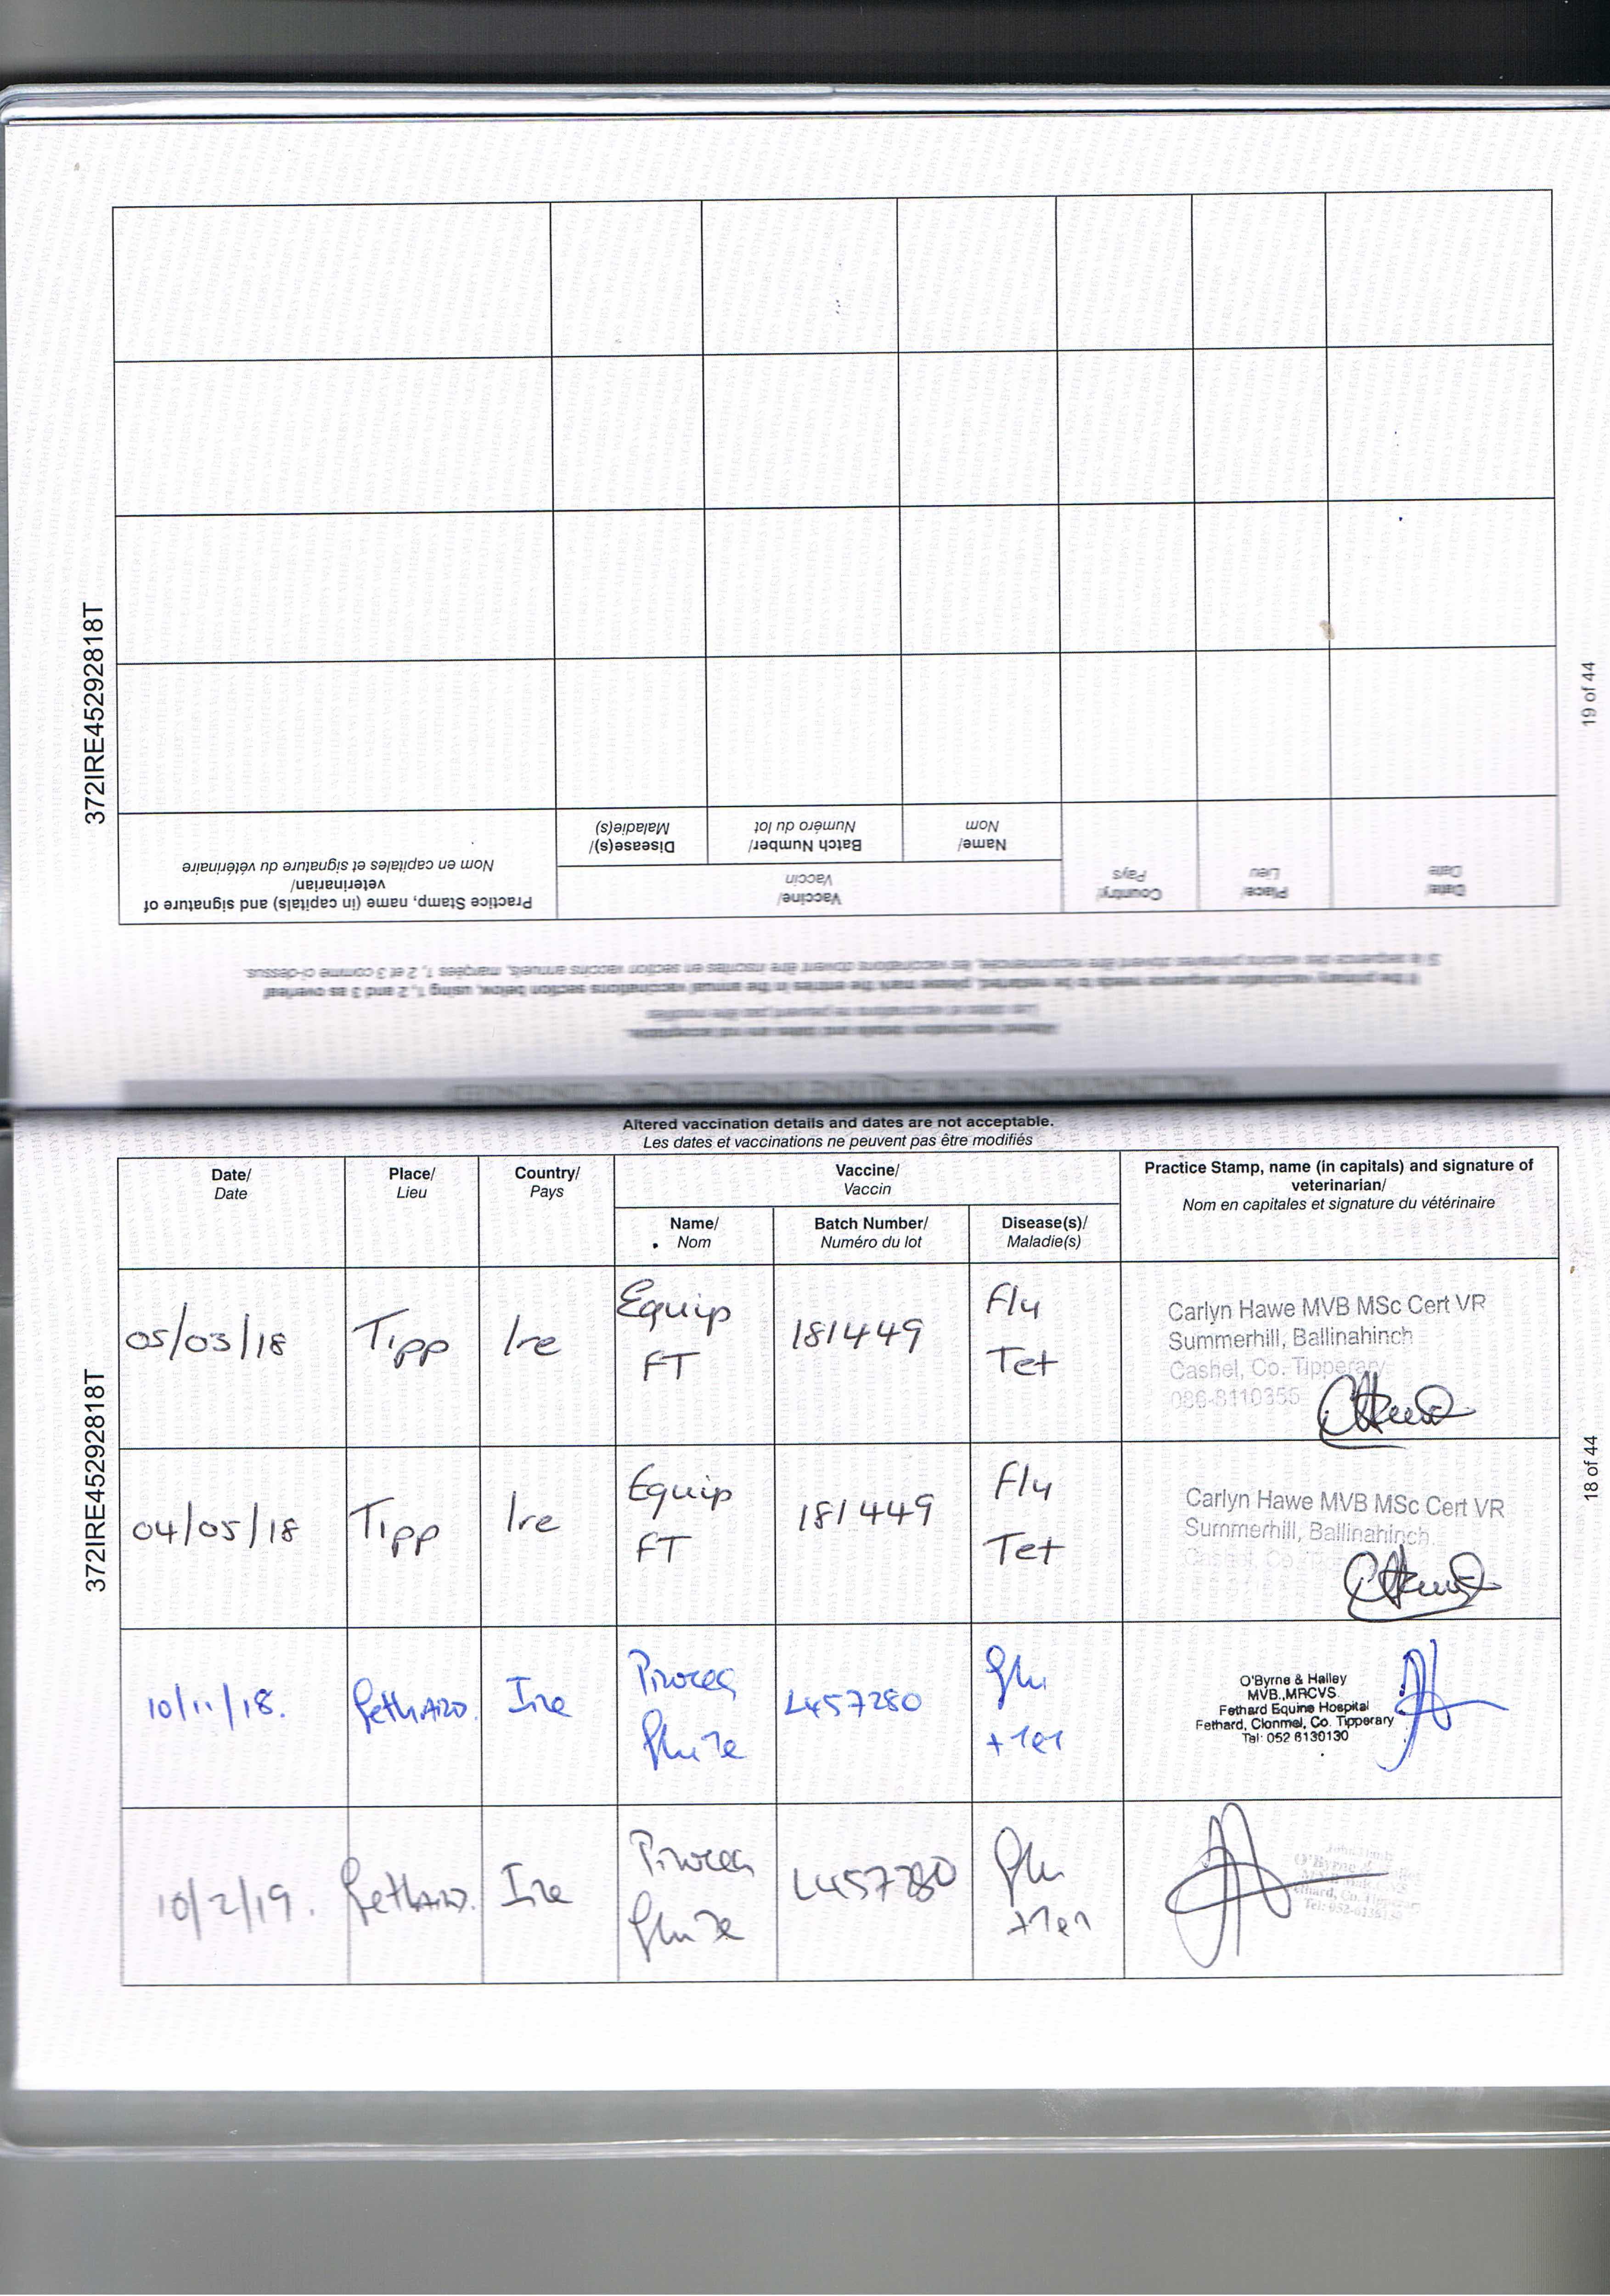 372IRE45292818T
19 of 44
VACCINATIONS - EQUINE INFLUENZA - CONTINUED
Altered vaccination details and dates are not acceptable.
Les dates et vaccinations ne peuvent pas être modifiés
If the primary vaccination sequence needs to be restarted, please mark the entries in the annual vaccinations section below, using 1, 2 and 3 as overleaf
Si la sequence des vaccins primaires doivent être recommencée, les vaccinations doivent être inscrites en section vaccins annuels, marquées 1, 2 et 3 comme ci-dessus.
Date/
Date
Place/
Lieu
Country/
Pays
Vaccine/
Vaccin
Name/
Nom
Batch Number/
Numéro du lot
Disease(s)/
Maladie(s)
Practice Stamp, name (in capitals) and signature of
veterinarian/
Nom en capitales et signature du vétérinaire
Altered vaccination details and dates are not acceptable.
Les dates et vaccinations ne peuvent pas être modifiés
372IRE45292818T
18 of 44
Date/
Date
Place/
Lieu
Country/
Pays
Vaccine/
Vaccin
Name/
Nom
Batch Number/
Numéro du lot
Disease(s)/
Maladie(s)
Practice Stamp, name (in capitals) and signature of
veterinarian/
Nom en capitales et signature du vétérinaire
05/03/18
Tipp
Ire
Equip
FT
181449
Flu
Tet
Carlyn Hawe MVB MSc Cert VR
Summerhill, Ballinahinch
Cashel, Co. Tipperary
086-8110355
04/05/18
Tipp
Ire
Equip
FT
181449
Flu
Tet
Carlyn Hawe MVB MSc Cert VR
Summerhill, Ballinahinch
10/11/18.
Fethard.
Ire
Proteq
Flu Te
L457280
Flu
+ Tet
O'Byrne & Halley
MVB.,MRCVS.
Fethard Equine Hospital
Fethard, Clonmel, Co. Tipperary
Tel: 052 6130130
10/2/19.
Fethard.
Ire
Proteq
Flu Te
L457280
Flu
+ Tet